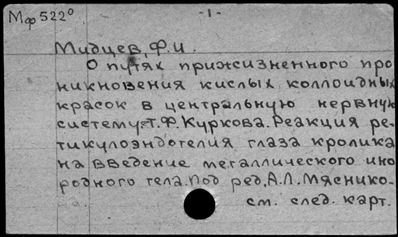 Мф522⁰
-1-
Мидцев, Ф.И.
О путях прижизненного про
никновения кислых коллоидных
красок в центральную нервную
систему. Т.Ф. Куркова. Реакция ре-
тикулоэндотелия глаза кролика
на введение металлического ино
родного тела. Под ред. А.Л. Мяснико-
ва.
см. след. карт.